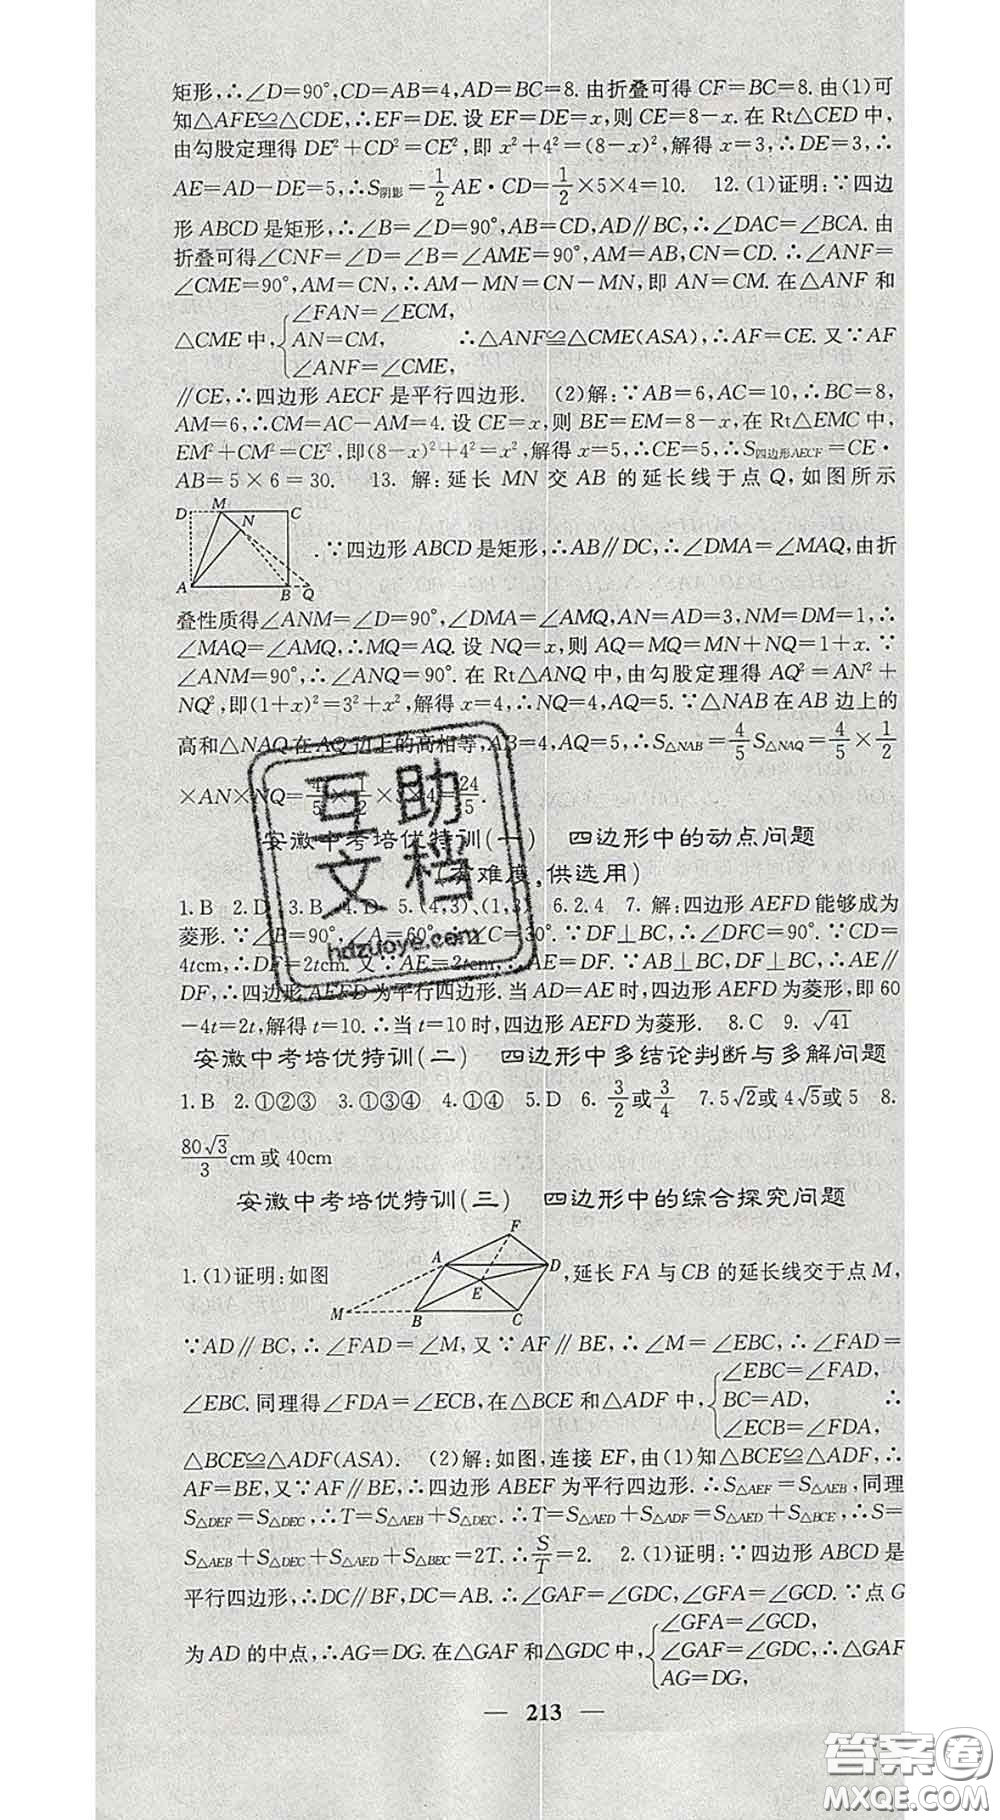 矩形,∴∠D=90°,CD=AB=4,AD=BC=8.由折叠可得CF=BC=8.由(1)可
知△AFE≌△CDE,∴EF=DE.设EF=DE=x,则CE=8-x.在Rt△CED中,
由勾股定理得DE²+CD²=CE²,即x²+4²=(8-x)²,解得x=3,∴DE=3,∴
AE=AD-DE=5,∴S阴影=1/2AE·CD=1/2×5×4=10. 12.(1)证明:∵四边
形ABCD是矩形,∴∠B=∠D=90°,AB=CD,AD∥BC,∴∠DAC=∠BCA.由
折叠可得∠CNF=∠D=∠B=∠AME=90°,AM=AB,CN=CD.∴∠ANF=
∠CME=90°,AM=CN,∴AM-MN=CN-MN,即AN=CM.在△ANF和
∠FAN=∠ECM,
△CME中,{AN=CM, ∴△ANF≌△CME(ASA),∴AF=CE.又∵AF
∠ANF=∠CME,
∥CE,∴四边形AECF是平行四边形. (2)解:∵AB=6,AC=10,∴BC=8,
AM=6,∴CM=AC-AM=4.设CE=x,则BE=EM=8-x,在Rt△EMC中,
EM²+CM²=CE²,即(8-x)²+4²=x²,解得x=5,∴CE=5,∴S四边形AECF=CE·
AB=5×6=30. 13. 解:延长MN交AB的延长线于点Q,如图所示
D M C
N
.∵四边形ABCD是矩形,∴AB∥DC,∴∠DMA=∠MAQ,由折
A B Q
叠性质得∠ANM=∠D=90°,∠DMA=∠AMQ,AN=AD=3,NM=DM=1,∴
∠MAQ=∠AMQ,∴MQ=AQ.设NQ=x,则AQ=MQ=MN+NQ=1+x.∵
∠ANM=90°,∴∠ANQ=90°.在Rt△ANQ中,由勾股定理得AQ²=AN²+
NQ²,即(1+x)²=3²+x²,解得x=4,∴NQ=4,AQ=5.∵△NAB在AB边上的
高和△NAQ在AQ边上的高相等,AB=4,AQ=5,∴S△NAB=4/5S△NAQ=4/5×1/2
×AN×NQ=4/5×1/2×3×4=24/5.
安徽中考培优特训(一) 四边形中的动点问题
(有难度,供选用)
1.B 2.D 3.B 4.D 5.(4,3)、(1,3) 6.2.4 7. 解:四边形AEFD能够成为
菱形.∵∠B=90°,∠A=60°,∴∠C=30°.∵DF⊥BC,∴∠DFC=90°.∵CD=
4tcm,∴DF=2tcm.又∵AE=2tcm,∴AE=DF.∵AB⊥BC,DF⊥BC,∴AE∥
DF,∴四边形AEFD为平行四边形.当AD=AE时,四边形AEFD为菱形,即60
-4t=2t,解得t=10.∴当t=10时,四边形AEFD为菱形. 8.C 9. √41
安徽中考培优特训(二) 四边形中多结论判断与多解问题
1.B 2.①②③ 3.①③④ 4.①④ 5.D 6. 3/2或3/4 7.5√2或4√5或5 8.
80√3/3cm或40cm
安徽中考培优特训(三) 四边形中的综合探究问题
F
A D
1.(1)证明:如图 ,延长FA与CB的延长线交于点M,
E
M B C
∵AD∥BC,∴∠FAD=∠M,又∵AF∥BE,∴∠M=∠EBC,∴∠FAD=
∠EBC=∠FAD,
∠EBC.同理得∠FDA=∠ECB,在△BCE和△ADF中,{BC=AD, ∴
∠ECB=∠FDA,
△BCE≌△ADF(ASA). (2)解:如图,连接EF,由(1)知△BCE≌△ADF,∴
AF=BE,又∵AF∥BE,∴四边形ABEF为平行四边形.∴S△AEF=S△AEB,同理
S△DEF=S△DEC,∴T=S△AEB+S△DEC.∴T=S△AED+S△ADF=S△AED+S△BCE,∴S=
S△AEB+S△DEC+S△AED+S△BEC=2T.∴S/T=2. 2.(1)证明:∵四边形ABCD是
平行四边形,∴DC∥BF,DC=AB.∴∠GAF=∠GDC,∠GFA=∠GCD.∵点G
∠GFA=∠GCD,
为AD的中点,∴AG=DG.在△GAF和△GDC中,{∠GAF=∠GDC,∴△GAF
AG=DG,
— 213 —
互助
文档
hdzuoye.com
答案圈
MXQE.COM